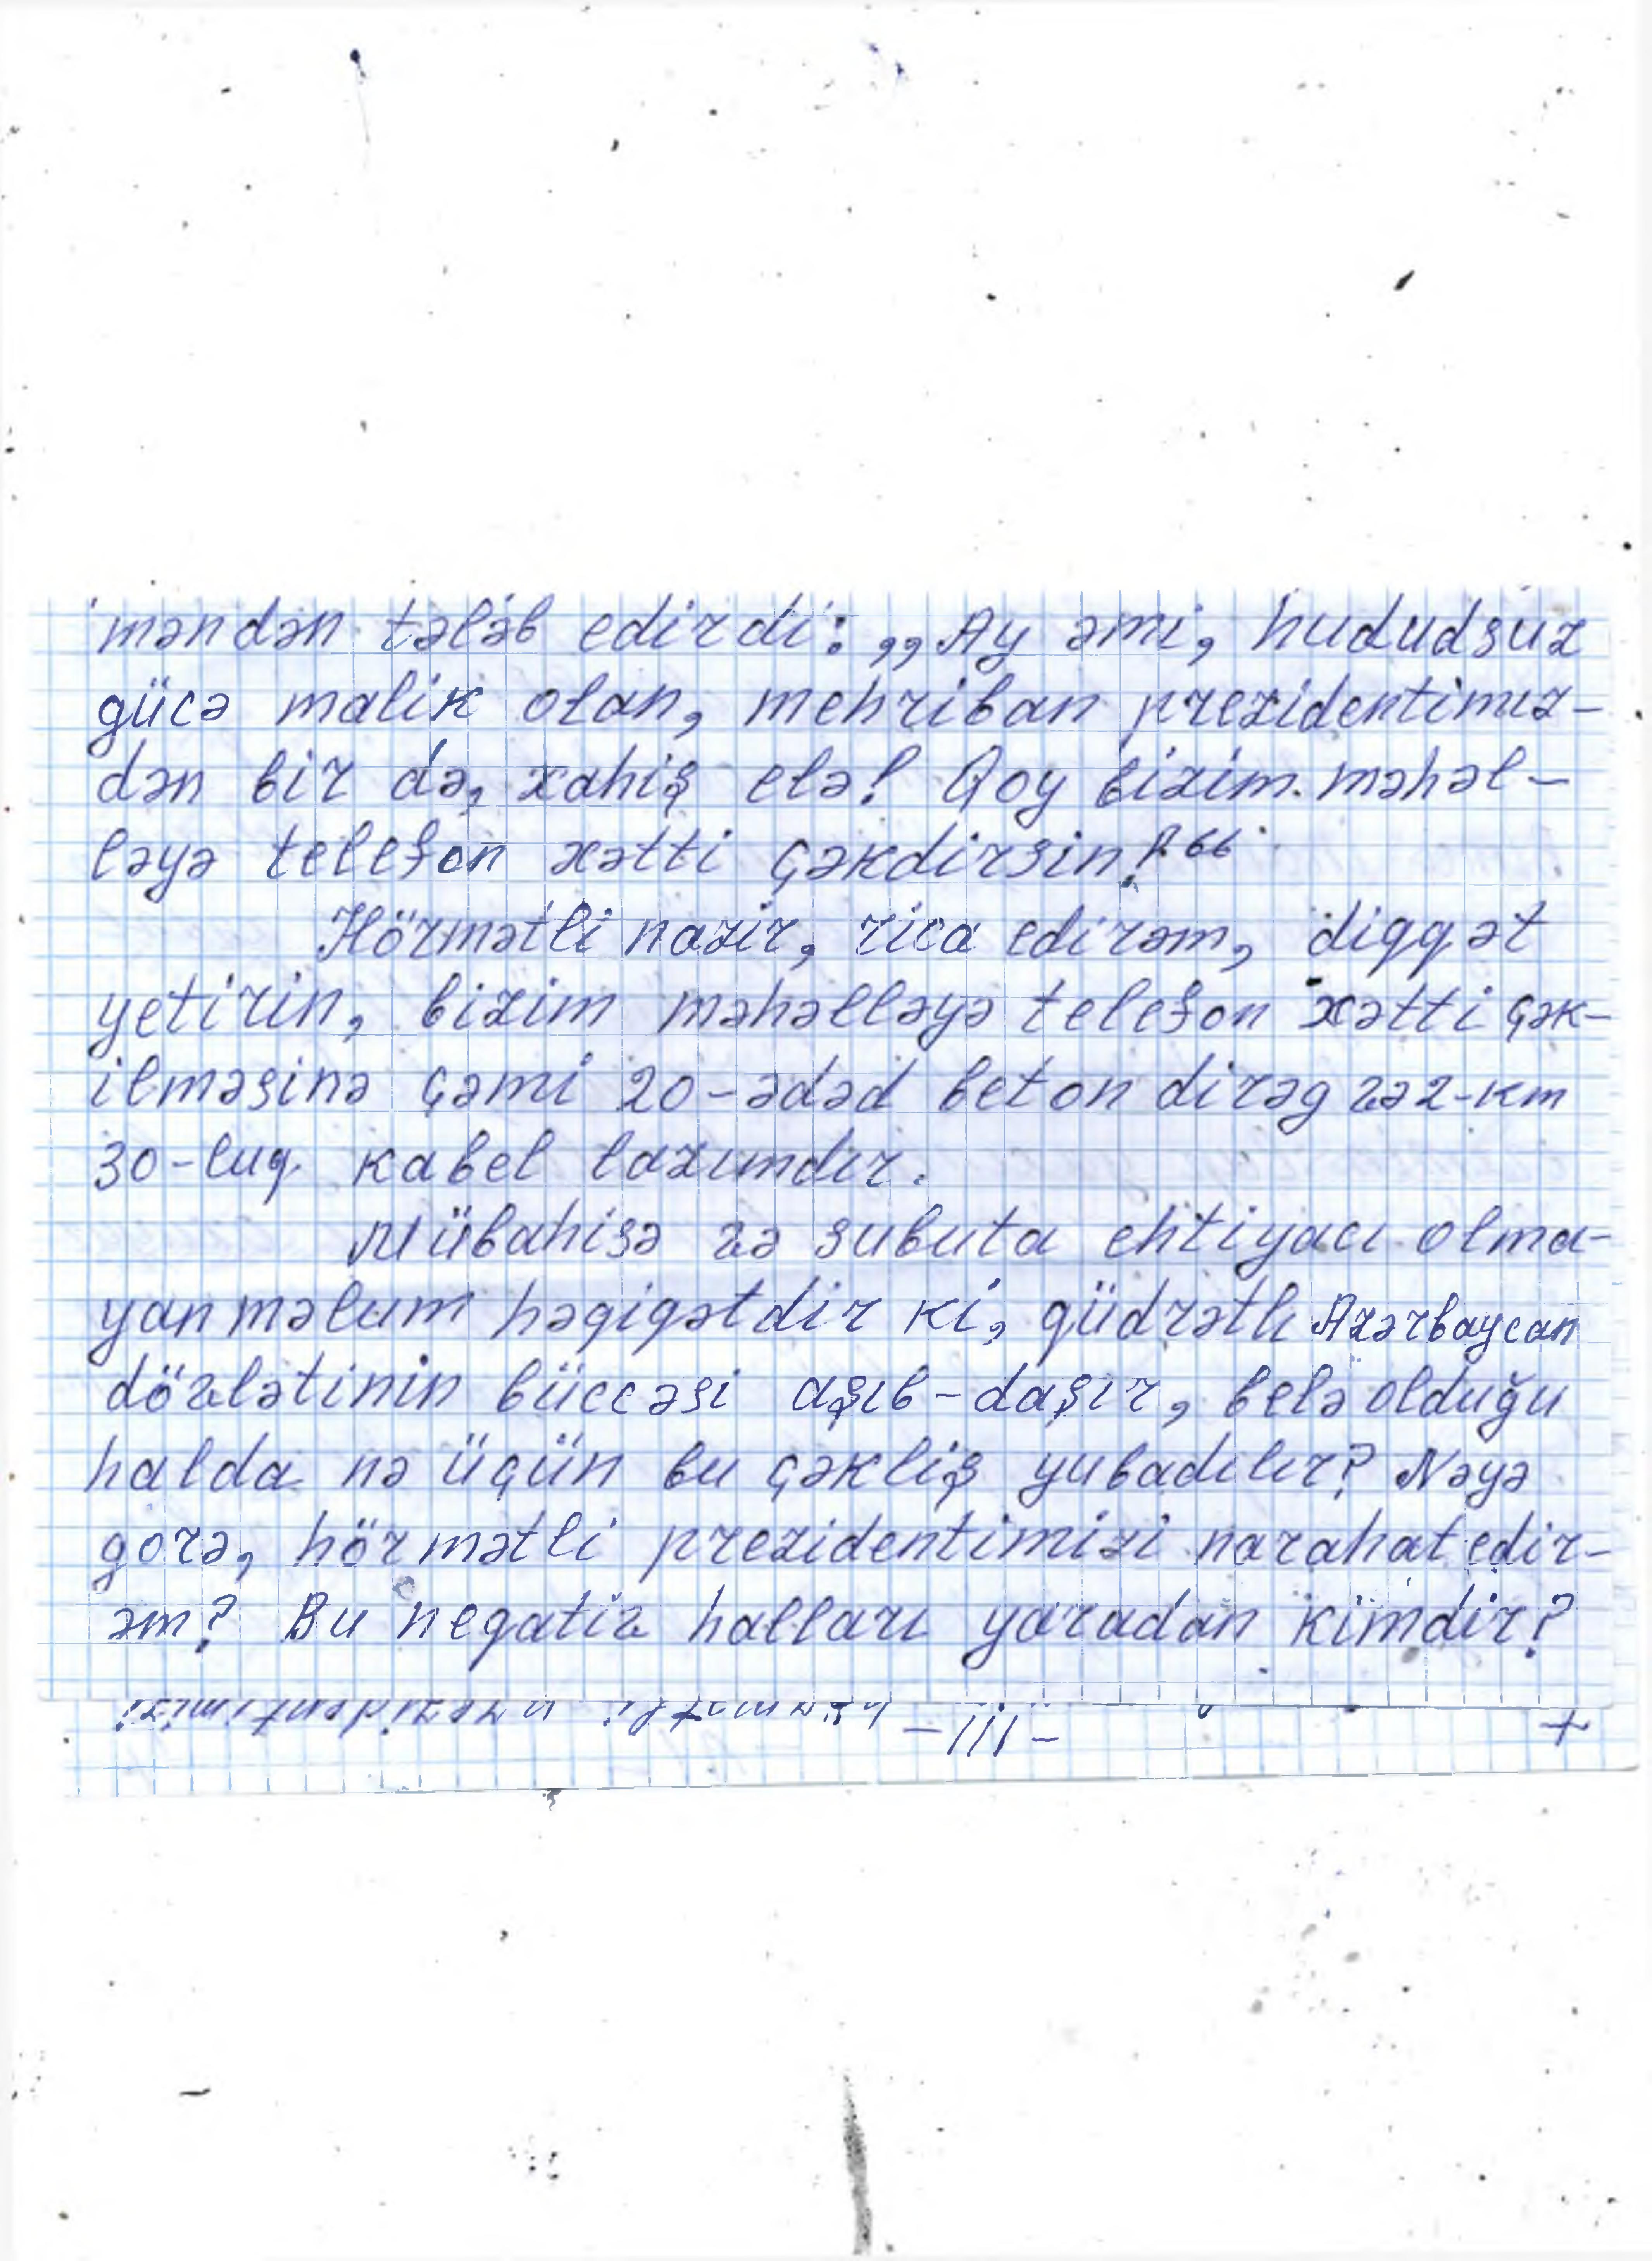 məndən tələb edirdi: ,,Ay əmi, hududsuz
gücə malik olan, mehriban prezidentimiz-
dən bir də, xahiş elə! Qoy bizim məhəl-
ləyə telefon xətti çəkdirsin!“
Hörmətli nazir, rica edirəm, diqqət
yetirin, bizim məhəlləyə telefon xətti çək-
ilməsinə çəmi 20-ədəd beton dirəg və 2-km
30-luq kabel lazımdır.
Mübahisə və subuta ehtiyacı olma-
yan məlum həqiqətdir ki, qüdrətli Azərbaycan
dövlətinin büccəsi aşıb-daşır, belə olduğu
halda nə üçün bu çəkliş yubadılır? Nəyə
gorə, hörmətli prezidentimizi narahat edir-
əm? Bu negativ halları yaradan kimdir?
hörmətli prezidentimizi
-III- +